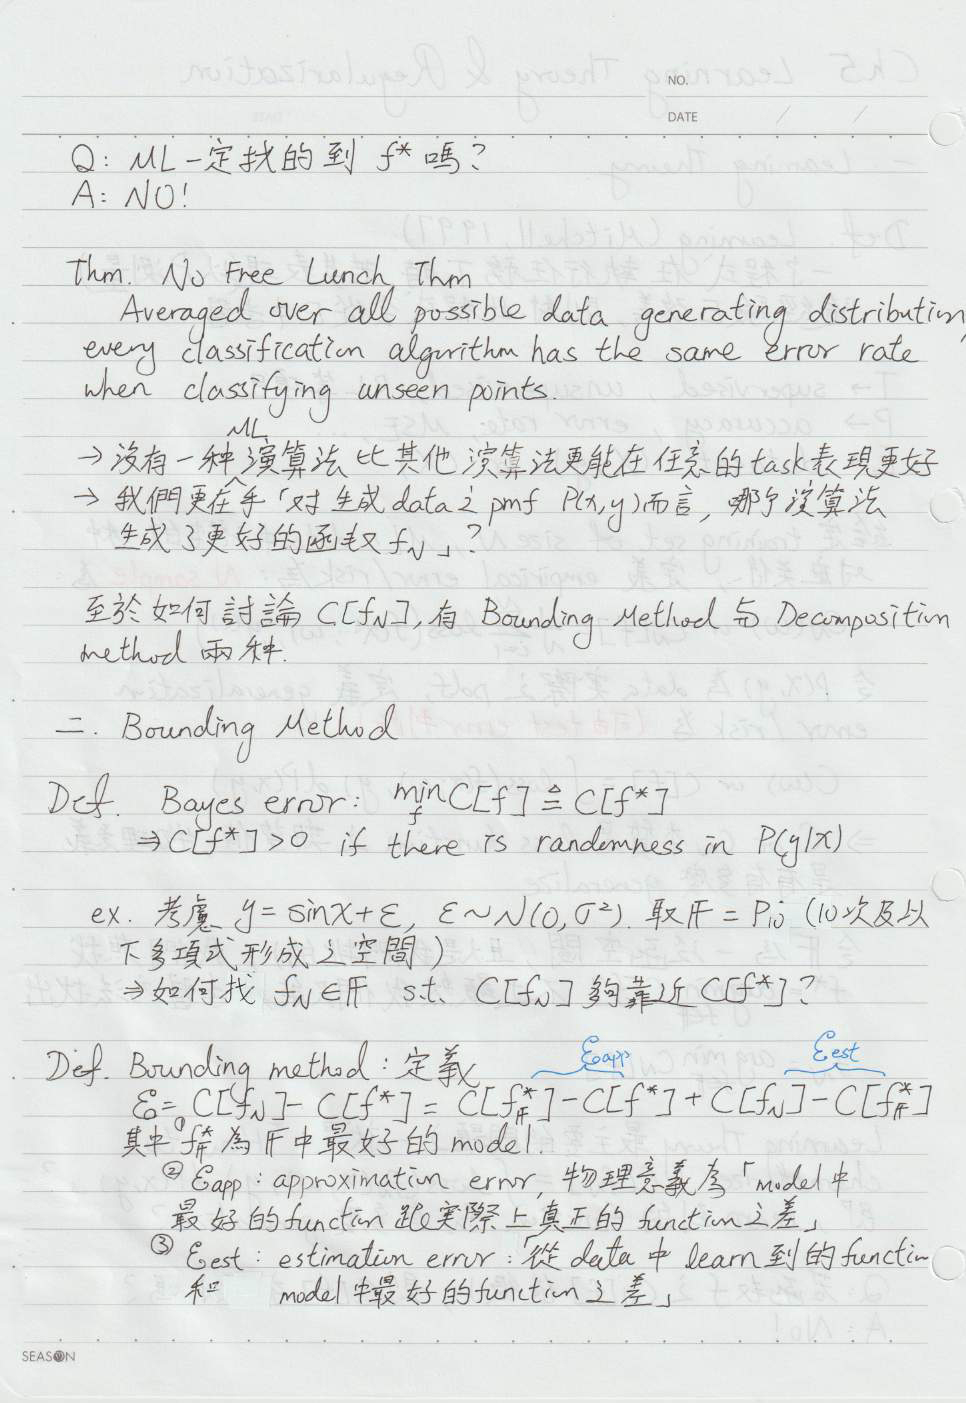 NO.
DATE
Q: ML一定找的到 f* 嗎?
A: NO!
Thm. No Free Lunch Thm
Averaged over all possible data generating distribution,
every classification algorithm has the same error rate
when classifying unseen points.
→ 沒有一種ML演算法比其他演算法更能在任意的task表現更好
→ 我們更在乎「对生成data之pmf P(x,y)而言, 哪个演算法
生成了更好的函数 f_N」?
至於如何討論 C[f_N], 有 Bounding Method 与 Decomposition
method 兩种.
二. Bounding Method
Def. Bayes error: min_f C[f] ≜ C[f*]
⇒ C[f*] > 0 if there is randomness in P(y|x)
ex. 考慮 y = sinx + ε, ε ~ N(0, σ²). 取 𝔽 = P₁₀ (10次及以
下多項式形成之空間)
⇒ 如何找 f_N ∈ 𝔽 s.t. C[f_N] 夠靠近 C[f*]?
ε_app ε_est
Def. Bounding method: 定義
ε = C[f_N] - C[f*] = C[f*_𝔽] - C[f*] + C[f_N] - C[f*_𝔽]
其中 ① f*_𝔽 為 𝔽 中最好的 model.
② ε_app : approximation error, 物理意義為「model中
最好的function跟實際上真正的 function之差」
③ ε_est : estimation error :「從 data 中 learn 到的function
和 model中最好的function之差」
SEASON